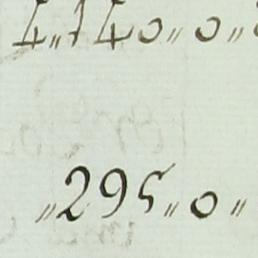 4〃140〃0〃
〃295〃0〃